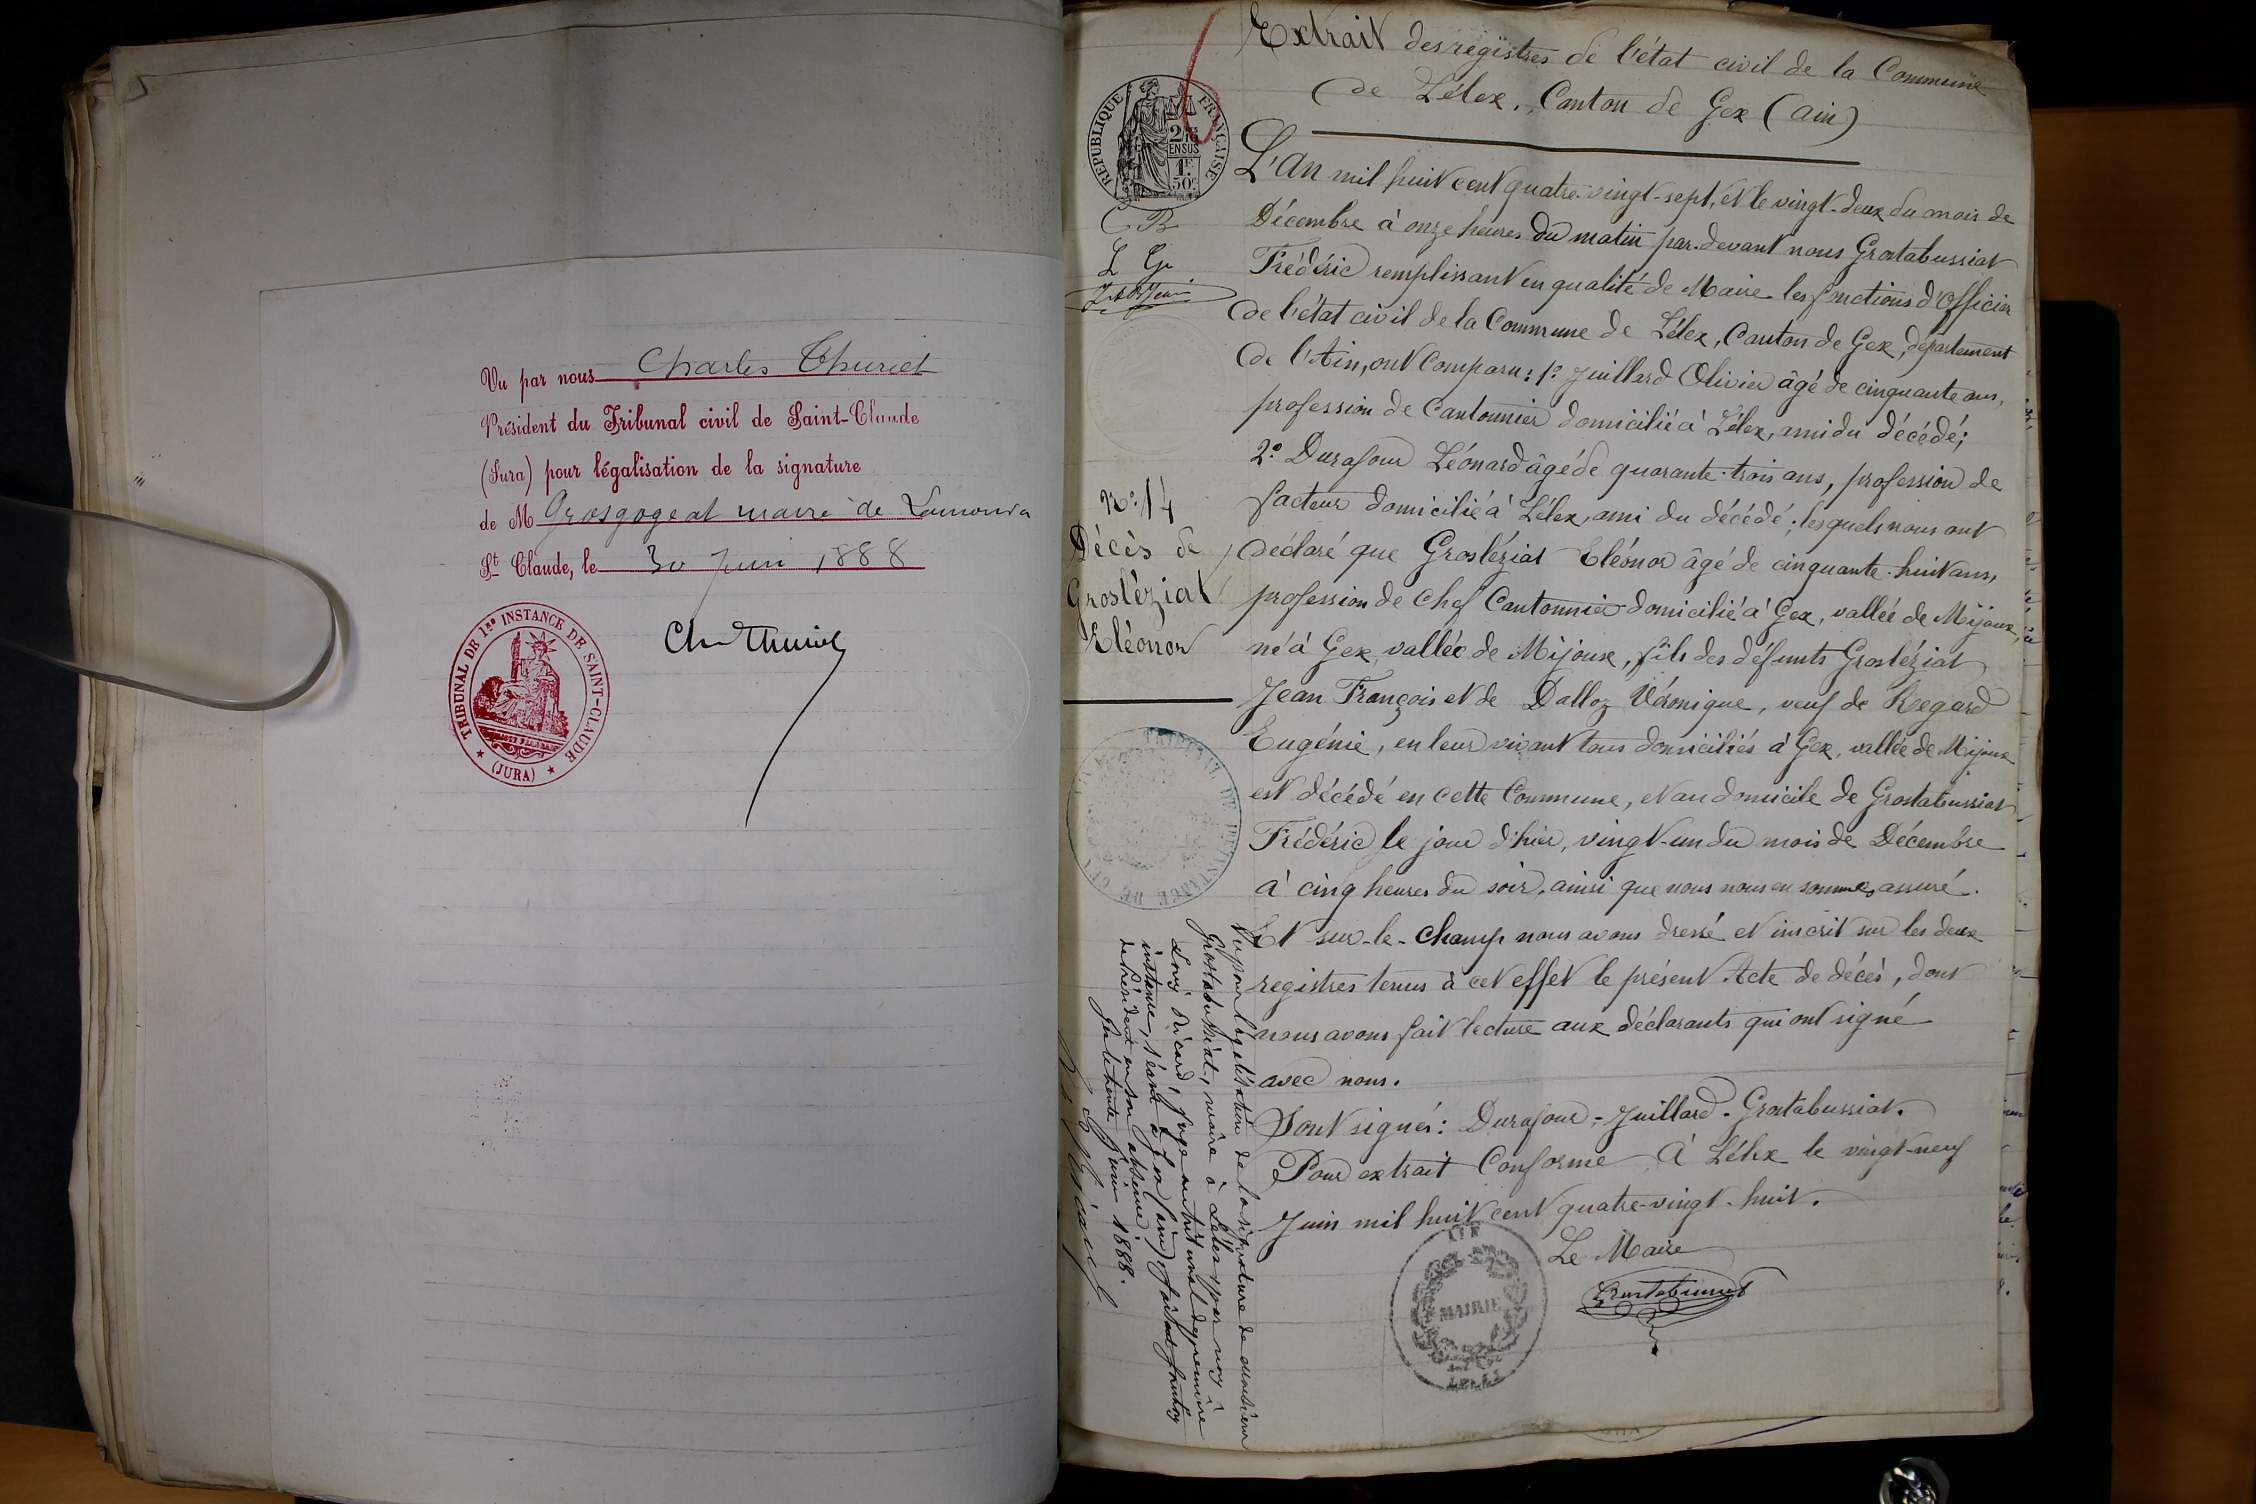 Vu par nous Charles Thuriet
Président du Tribunal civil de Saint-Claude
(Jura) pour légalisation de la signature
de M Grosgogeat maire de Lamoura
St Claude, le 30 Juin 1888
TRIBUNAL DE 1re INSTANCE DE SAINT-CLAUDE
(JURA)
Ch Thuriet
Extrait des registres de l'état civil de la Commune
de Lélex, Canton de Gex (Ain)
REPUBLIQUE FRANÇAISE
2/10
EN SUS
1F.
50c
C B
L G
L'An mil huit cent quatre-vingt-sept, et le vingt-deux du mois de
Décembre à onze heures du matin par-devant nous Grostabussiat
Frédéric remplissant en qualité de Maire les fonctions d'Officier
de l'état civil de la Commune de Lélex, Canton de Gex, département
de l'Ain, ont Comparu: 1° Juillard Olivier âgé de cinquante ans,
profession de Cantonnier domicilié à Lélex, ami du décédé;
2° Durafour Léonard âgé de quarante-trois ans, profession de
facteur domicilié à Lélex, ami du décédé; lesquels nous ont
déclaré que Grosléziat Eléonor âgé de cinquante-huit ans,
profession de Chef Cantonnier domicilié à Gex, vallée de Mijoux,
né à Gex, vallée de Mijoux, fils des défunts Grosléziat
Jean François et de Dalloz Véronique, veuf de Regard
Eugénie, en leur vivant tous domiciliés à Gex, vallée de Mijoux
est décédé en cette Commune, et au domicile de Grostabussiat
Frédéric le jour d'hier, vingt-un du mois de Décembre
à cinq heures du soir, ainsi que nous nous en sommes assuré.
Et sur-le-champ nous avons dressé et inscrit sur les deux
registres tenus à cet effet le présent Acte de décès, dont
nous avons fait lecture aux déclarants qui ont signé
avec nous.
Sont signés: Durafour - Juillard - Grostabussiat.
Pour extrait Conforme À Lélex le vingt-neuf
Juin mil huit cent quatre-vingt-huit.
Le Maire
Grostabussiat
MAIRIE
LELEX
N° 14
Décès de
Grosléziat
Eléonor
TRIBUNAL DE 1re INSTANCE DE GEX
Vu pour légalisation de la signature de monsieur
Grostabussiat, maire à Lélex par nous
Louis Ricard, juge au tribunal de première
instance, séant à Gex (Ain), faisant fonctions
de Président en son absence.
Gex le trente Juin 1888.